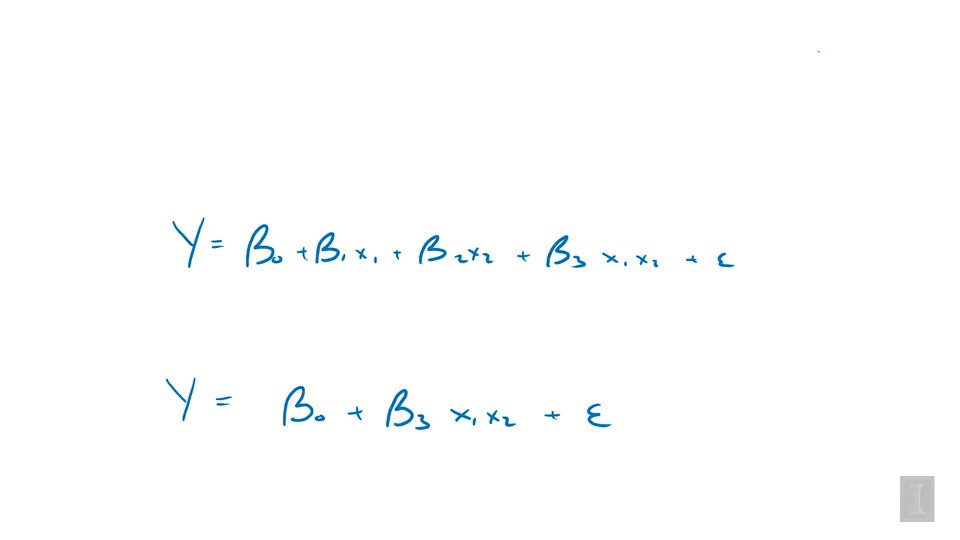 Y = β₀ + β₁x₁ + β₂x₂ + β₃x₁x₂ + ε
Y = β₀ + β₃x₁x₂ + ε
I